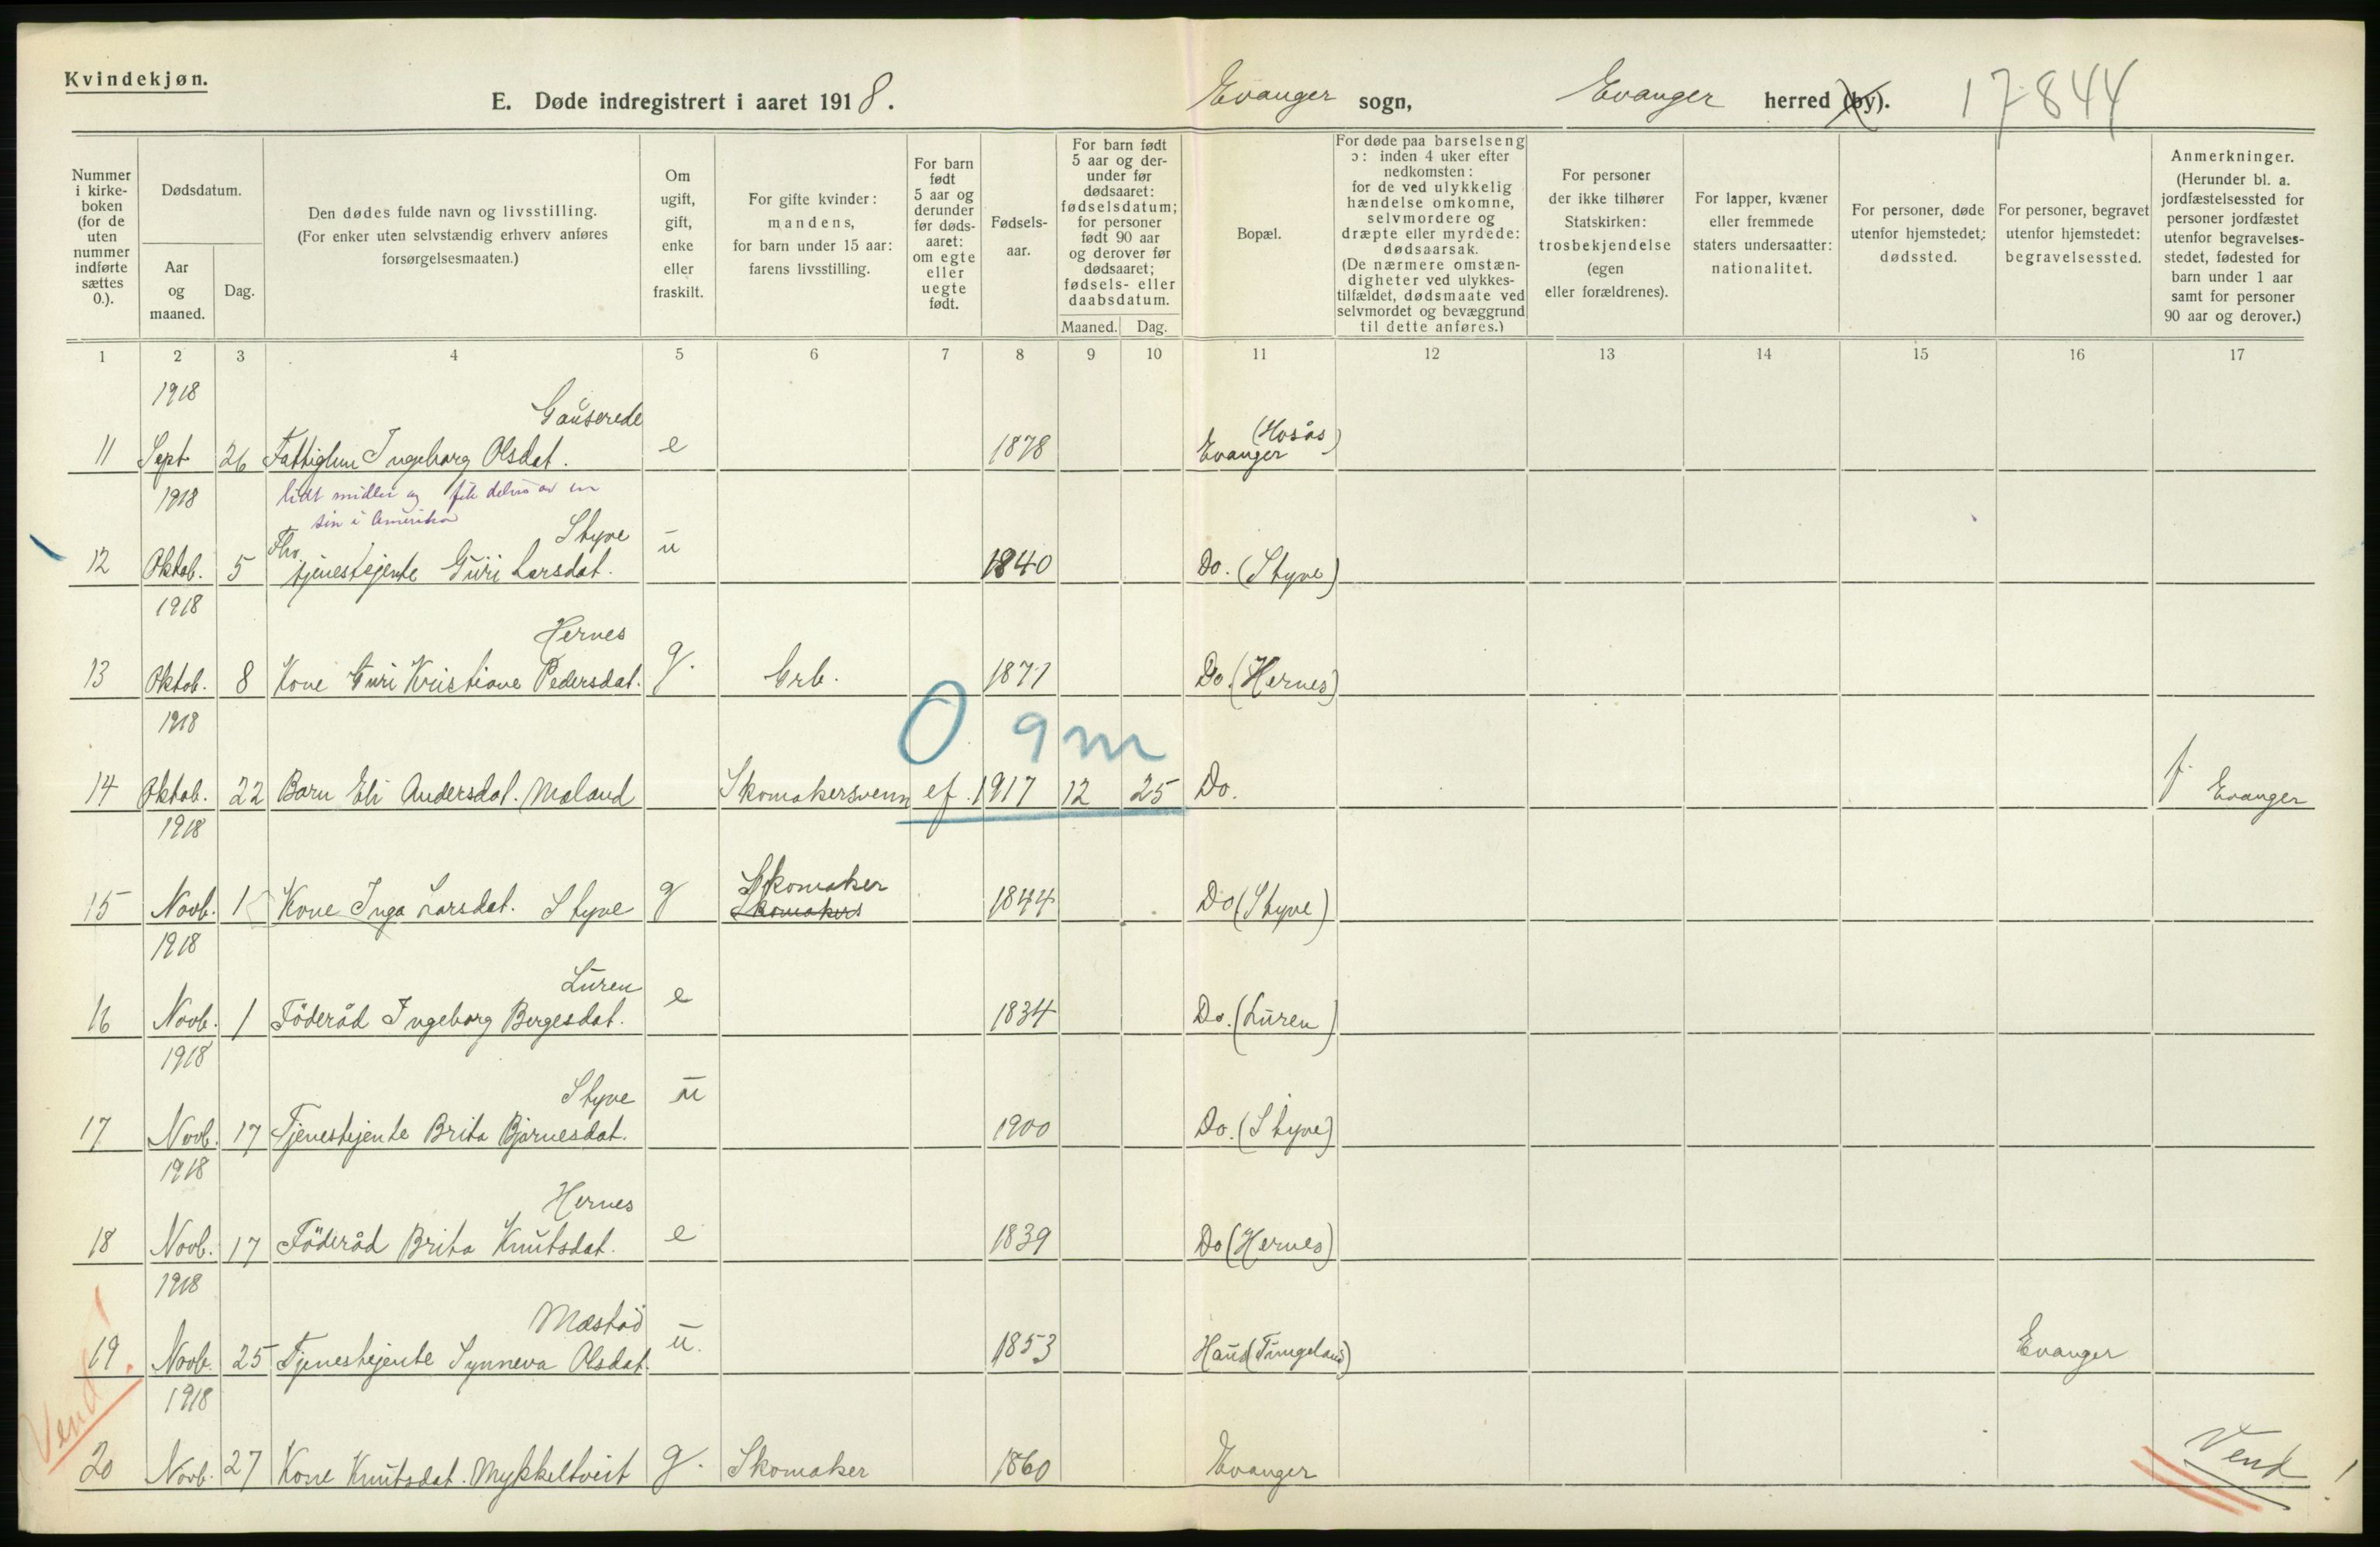 Kvindekjøn.
E. Døde indregistrert i aaret 1918. Evanger sogn, Evanger herred (by). 17844
Nummer i kirkeboken (for de uten nummer indførte sættes 0.).
Dødsdatum.
Aar og maaned.
Dag.
Den dødes fulde navn og livsstilling. (For enker uten selvstændig erhverv anføres forsørgelsesmaaten.)
Om ugift, gift, enke eller fraskilt.
For gifte kvinder: mandens, for barn under 15 aar: farens livsstilling.
For barn født 5 aar og derunder før dødsaaret: om egte eller uegte født.
Fødselsaar.
For barn født 5 aar og derunder før dødsaaret: fødselsdatum; for personer født 90 aar og derover før dødsaaret; fødsels- eller daabsdatum.
Maaned. Dag.
Bopæl.
For døde paa barselseng ɔ: inden 4 uker efter nedkomsten: for de ved ulykkelig hændelse omkomne, selvmordere og dræpte eller myrdede: dødsaarsak. (De nærmere omstændigheter ved ulykkestilfældet, dødsmaate ved selvmordet og bevæggrund til dette anføres.)
For personer der ikke tilhører Statskirken: trosbekjendelse (egen eller forældrenes).
For lapper, kvæner eller fremmede staters undersaatter: nationalitet.
For personer, døde utenfor hjemstedet: dødssted.
For personer, begravet utenfor hjemstedet: begravelsessted.
Anmerkninger. (Herunder bl. a. jordfæstelsessted for personer jordfæstet utenfor begravelsesstedet, fødested for barn under 1 aar samt for personer 90 aar og derover.)
1 2 3 4 5 6 7 8 9 10 11 12 13 14 15 16 17
1918 Gauserede
11 Sept. 26 Fattiglem Ingeborg Olsdat. e 1878 Evanger (Hosås)
1918 lidt midler og fik delvis av en
søn i Amerika
Styve
12 Oktob. 5 Fhv. tjenestejente Guri Larsdat. u 1840 Do. (Styve)
1918 Hernes
13 Oktob. 8 Kone Guri Kristiane Pedersdat. g. Grb. 1871 Do. (Hernes)
1918 0 9 m
14 Oktob. 22 Barn Eli Andersdat. Møland Skomakersvenn ef. 1917 12 25 Do. f. Evanger
1918
15 Novb. 1 Kone Inga Larsdat. Styve g Skomaker Skomakers 1844 Do (Styve)
1918 Luren
16 Novb. 1 Föderåd Ingeborg Bergesdat. e 1834 Do. (Luren)
1918 Styve
17 Novb. 17 Tjenestejente Brita Bjarnesdat. u 1900 Do. (Styve)
1918 Hernes
18 Novb. 17 Föderåd Brita Knutsdat. e 1839 Do (Hernes)
1918 Mæstad
19. Novb. 25 Tjenestejente Synneva Olsdat. u. 1853 Haus (Tungeland) Evanger
1918
20 Novb. 27 Kone Knutsdat. Mykkeltveit g. Skomaker 1860 Evanger
Vend!
Vend!